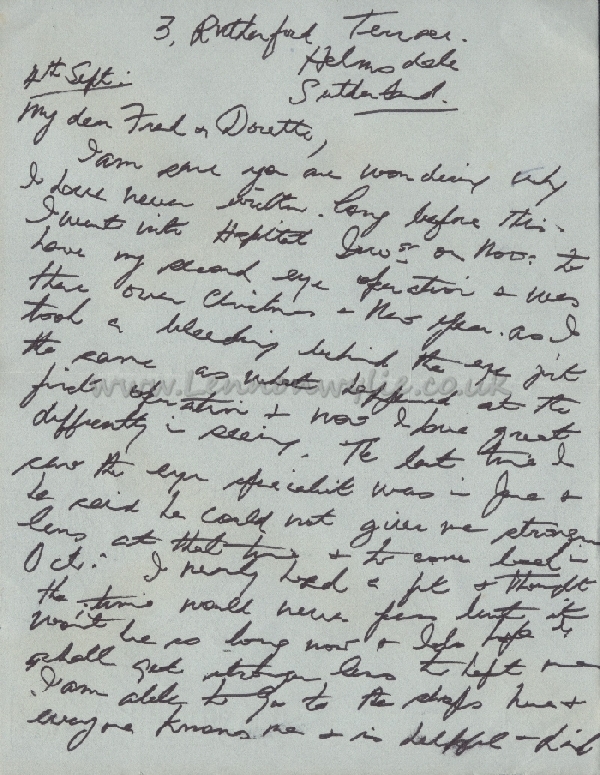 3, Rutherford Terrace.
Helmsdale
Sutherland.
4th Sept:
My dear Fred & Doretta,
I am sure you are wondering why
I have never written long before this.
I went into Hospital on Nov: to
have my second eye operation & was
there over Christmas & New Year. as I
took a bleeding behind the eye just
the same as what happened at the
www.Lennonwylie.co.uk
first operation & now I have great
difficulty in seeing. The last time I
saw the eye specialist was in June &
he said he could not give me stronger
lens at that time & to come back in
Oct: I nearly had a fit & thought
the time would never pass but it
won't be so long now & lets hope I
shall get stronger lens to help me
I am able to go to the shops here &
everyone knows me & is helpful & kind